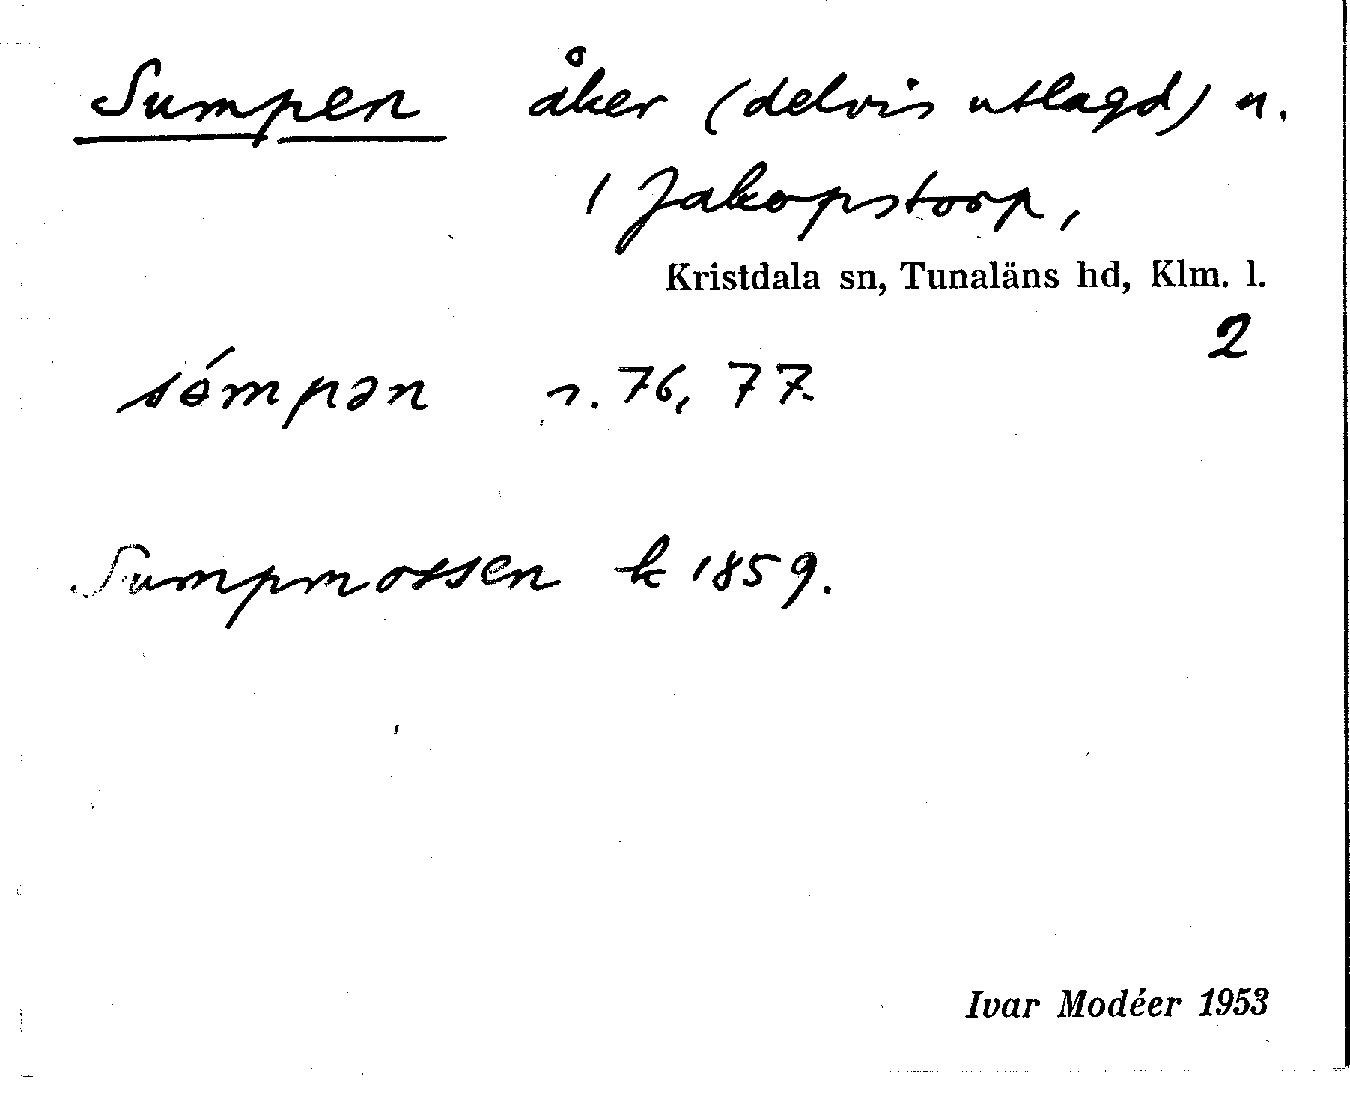 Sumpen åker (delvis utlagd) n.
1 Jakopstorp,
Kristdala sn, Tunaläns hd, Klm. l.
2
sémpən n. 76, 77.
Sumpmossen k 1859.
Ivar Modéer 1953